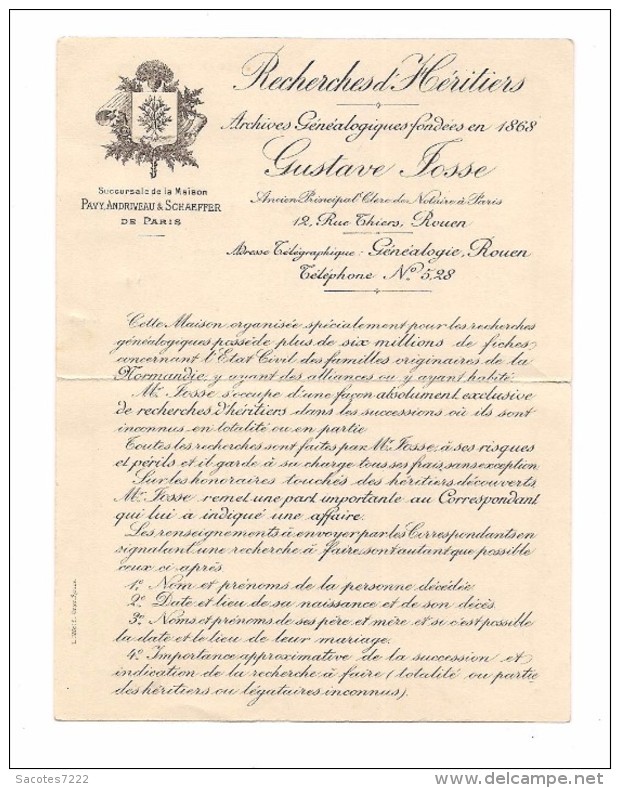 Recherches d'Héritiers
Archives Généalogiques fondées en 1868
Gustave Fosse
Ancien Principal Clerc de Notaire à Paris
12, Rue Thiers, Rouen
Adresse Télégraphique : Généalogie, Rouen
Téléphone No 5,28
Succursale de la Maison
PAVY, ANDRIVEAU & SCHAEFFER
DE PARIS
Cette Maison organisée spécialement pour les recherches
généalogiques possède plus de six millions de fiches
concernant l'Etat Civil des familles originaires de la
Normandie, y ayant des alliances ou y ayant habité.
Mr. Fosse s'occupe d'une façon absolument exclusive
de recherches d'héritiers dans les successions où ils sont
inconnus en totalité ou en partie
Toutes les recherches sont faites par Mr. Fosse, à ses risques
et périls et il garde à sa charge tous ses frais, sans exception
Sur les honoraires touchés des héritiers découverts,
Mr. Fosse remet une part importante au Correspondant
qui lui à indiqué une affaire.
Les renseignements à envoyer par les Correspondants en
signalant une recherche à faire, sont autant que possible
ceux ci après
1o Nom et prénoms de la personne décédée
2o Date et lieu de sa naissance et de son décès
3o Noms et prénoms de ses père et mère et si c'est possible
la date et le lieu de leur mariage.
4o Importance approximative de la succession et
indication de la recherche à faire (totalité ou partie
des héritiers ou légataires inconnus).
Sacotes7222
www.delcampe.net